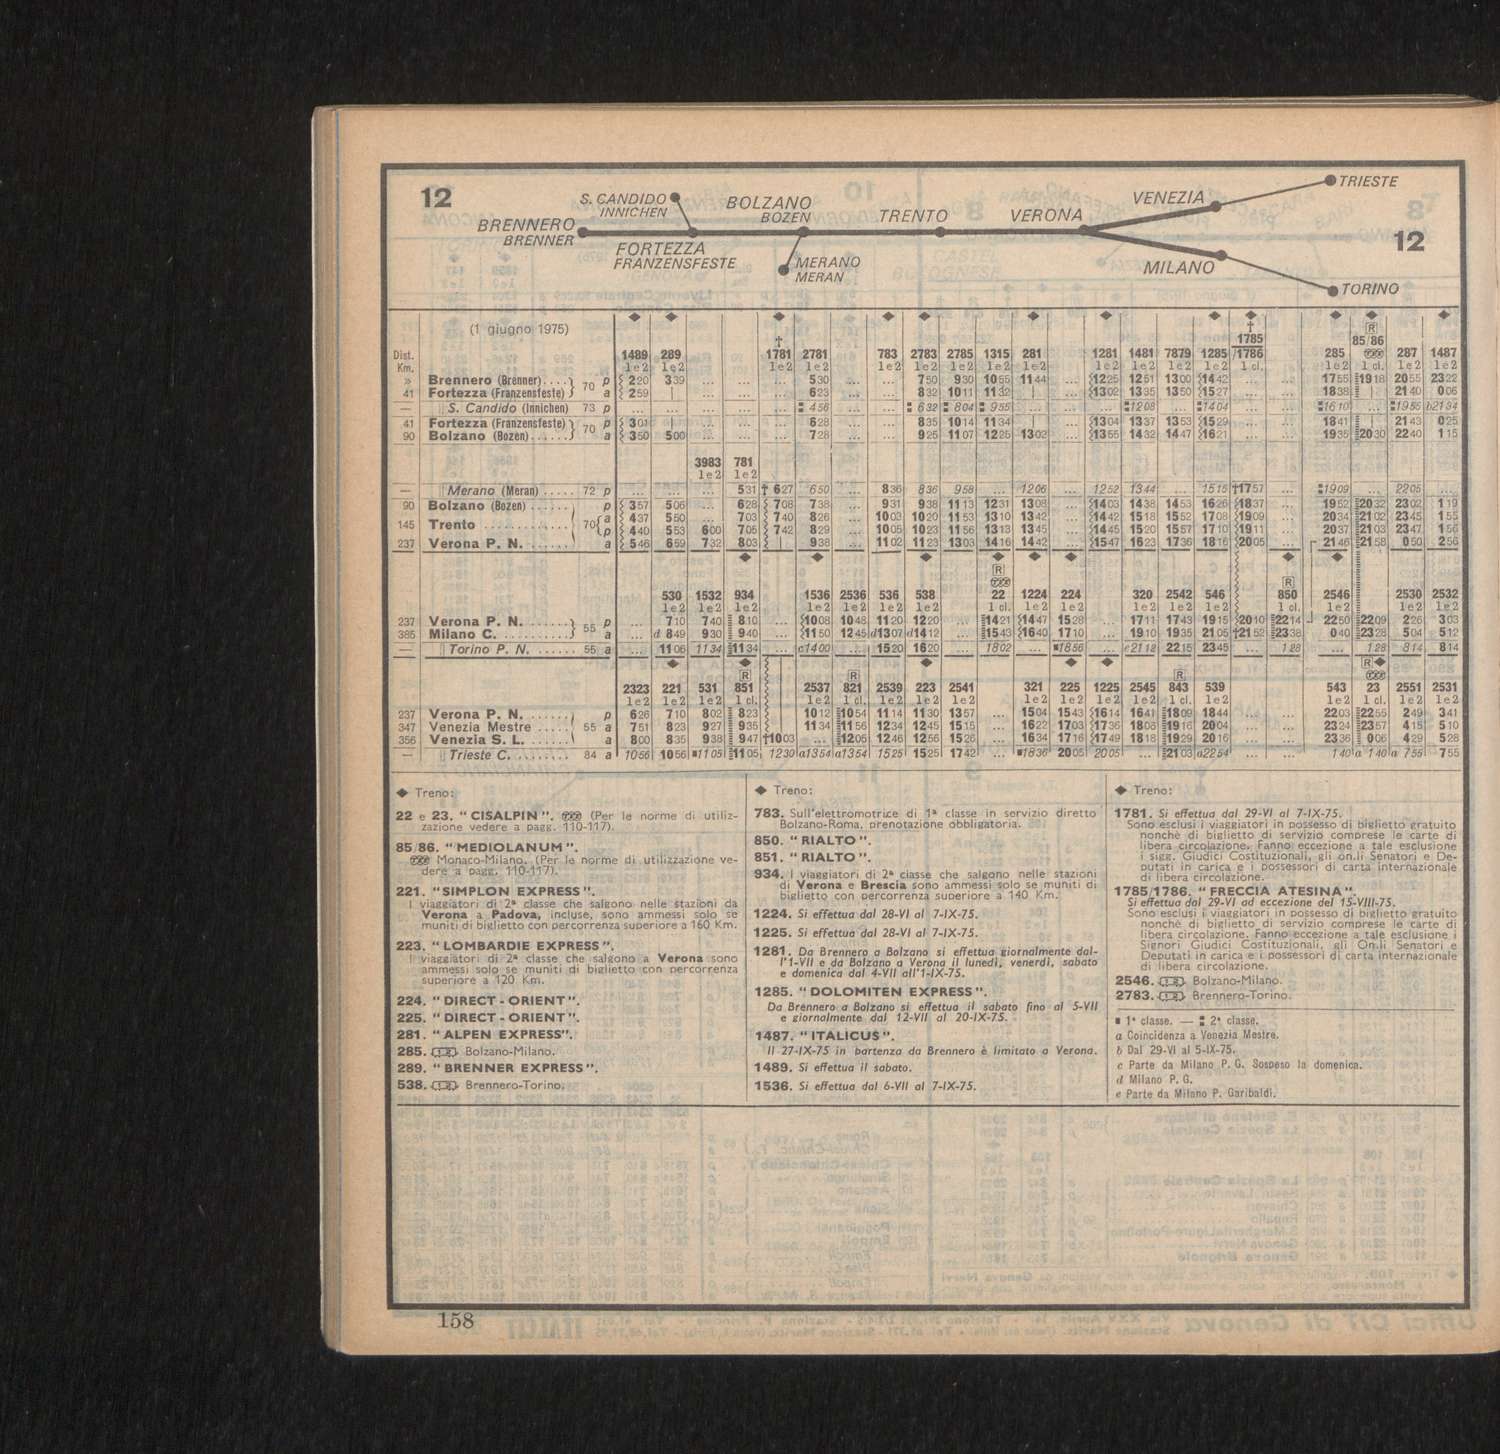 12
S. CANDIDO
INNICHEN
BRENNERO
BRENNER
FORTEZZA
FRANZENSFESTE
BOLZANO
BOZEN
MERANO
MERAN
TRENTO
VERONA
VENEZIA
TRIESTE
MILANO
TORINO
12
(1 giugno 1975)
Dist. Km. 1489 289 1781 2781 783 2783 2785 1315 281 1281 1481 7879 1285 1785/1786 285 85/86 287 1487
» Brennero (Brenner).... 70 p 220 339 ... ... ... 530 ... ... 750 930 1055 1144 ... 1225 1251 1300 1442 ... ... 1755 1918 2055 2322
41 Fortezza (Franzensfeste) a 259 ... ... ... 623 ... ... 832 1011 1132 | ... 1302 1335 1350 1527 ... ... 1838 | 2140 006
— S. Candido (Innichen) 73 p ... ... ... ... ... 456 ... ... 632 804 955 ... ... ... 1208 ... 1404 ... ... 1610 ... 1955 b2134
41 Fortezza (Franzensfeste) 70 p 301 | ... ... ... 628 ... ... 835 1014 1134 | ... 1304 1337 1353 1529 ... ... 1841 | 2143 025
90 Bolzano (Bozen)...... a 350 500 ... ... ... 728 ... ... 925 1107 1225 1302 ... 1355 1432 1447 1621 ... ... 1935 2030 2240 115
3983 781
1e2 1e2
— Merano (Meran) ..... 72 p ... ... ... 531 † 627 650 ... 836 836 958 ... 1206 ... 1252 1344 ... 1515 †1757 1909 ... 2205 ...
90 Bolzano (Bozen) ...... p 357 506 ... 628 708 738 ... 931 938 1113 1231 1308 ... 1403 1438 1453 1626 1837 ... 1952 2032 2302 119
145 Trento ............ 70 a 437 550 ... 703 740 826 ... 1003 1020 1153 1310 1342 ... 1442 1518 1552 1708 1909 ... 2034 2102 2345 155
p 440 553 600 705 742 829 ... 1005 1023 1156 1313 1345 ... 1445 1520 1557 1710 1911 ... 2037 2103 2347 156
237 Verona P. N. ....... a 546 659 732 803 | 938 ... 1102 1123 1303 1416 1442 ... 1547 1623 1736 1816 2005 ... 2146 2158 050 256
530 1532 934 1536 2536 536 538 22 1224 224 320 2542 546 850 2546 2530 2532
237 Verona P. N. ...... 55 p ... 710 740 810 1008 1048 1120 1220 1421 1447 1528 1711 1743 1915 2010 2214 2250 2209 226 303
385 Milano C. .......... a ... d 849 930 940 1150 1245 d1307 d1412 1543 1640 1710 1910 1935 2105 †2152 2338 040 2328 504 512
— Torino P. N. ...... 55 a ... 1106 1134 1134 c1400 ... 1520 1620 1802 ... 1856 e2118 2215 2345 128 ... 128 814 814
2323 221 531 851 2537 821 2539 223 2541 321 225 1225 2545 843 539 543 23 2551 2531
237 Verona P. N. ...... p 626 710 802 823 1012 1054 1114 1130 1357 ... 1504 1543 1614 1641 1809 1844 ... ... 2203 2255 249 341
347 Venezia Mestre ..... 55 a 751 823 927 935 1134 1156 1234 1245 1515 ... 1622 1703 1736 1805 1916 2004 ... ... 2324 2357 415 510
356 Venezia S. L. ...... a 800 835 938 947 †1003 ... 1205 1246 1256 1526 ... 1634 1716 1749 1818 1929 2016 ... ... 2336 006 429 528
— Trieste C. ........ 84 a 1056 1056 1105 1105 1230 a1354 a1354 1525 1525 1742 ... 1836 2005 2005 ... 2103 a2254 ... ... 140 a 140 a 755 755
◆ Treno:
22 e 23. "CISALPIN". (Per le norme di utiliz-
zazione vedere a pagg. 110-117).
85/86. "MEDIOLANUM".
Monaco-Milano. (Per le norme di utilizzazione ve-
dere a pagg. 110-117).
221. "SIMPLON EXPRESS".
I viaggiatori di 2ª classe che salgono nelle stazioni da
Verona a Padova, incluse, sono ammessi solo se
muniti di biglietto con percorrenza superiore a 160 Km.
223. "LOMBARDIE EXPRESS".
I viaggiatori di 2ª classe che salgono a Verona sono
ammessi solo se muniti di biglietto con percorrenza
superiore a 120 Km.
224. "DIRECT - ORIENT".
225. "DIRECT - ORIENT".
281. "ALPEN EXPRESS".
285. Bolzano-Milano.
289. "BRENNER EXPRESS".
538. Brennero-Torino.
◆ Treno:
783. Sull'elettromotrice di 1ª classe in servizio diretto
Bolzano-Roma, prenotazione obbligatoria.
850. "RIALTO".
851. "RIALTO".
934. I viaggiatori di 2ª classe che salgono nelle stazioni
di Verona e Brescia sono ammessi solo se muniti di
biglietto con percorrenza superiore a 140 Km.
1224. Si effettua dal 28-VI al 7-IX-75.
1225. Si effettua dal 28-VI al 7-IX-75.
1281. Da Brennero a Bolzano si effettua giornalmente dal-
l'1-VII e da Bolzano a Verona il lunedì, venerdì, sabato
e domenica dal 4-VII all'1-IX-75.
1285. "DOLOMITEN EXPRESS".
Da Brennero a Bolzano si effettua il sabato fino al 5-VII
e giornalmente dal 12-VII al 20-IX-75.
1487. "ITALICUS".
Il 27-IX-75 in partenza da Brennero è limitato a Verona.
1489. Si effettua il sabato.
1536. Si effettua dal 6-VII al 7-IX-75.
◆ Treno:
1781. Si effettua dal 29-VI al 7-IX-75.
Sono esclusi i viaggiatori in possesso di biglietto gratuito
nonchè di biglietto di servizio comprese le carte di
libera circolazione. Fanno eccezione a tale esclusione
i sigg. Giudici Costituzionali, gli on.li Senatori e De-
putati in carica e i possessori di carta internazionale
di libera circolazione.
1785/1786. "FRECCIA ATESINA".
Si effettua dal 29-VI ad eccezione del 15-VIII-75.
Sono esclusi i viaggiatori in possesso di biglietto gratuito
nonchè di biglietto di servizio comprese le carte di
libera circolazione. Fanno eccezione a tale esclusione i
Signori Giudici Costituzionali, gli On.li Senatori e
Deputati in carica e i possessori di carta internazionale
di libera circolazione.
2546. Bolzano-Milano.
2783. Brennero-Torino.
1ª classe. — 2ª classe.
a Coincidenza a Venezia Mestre.
b Dal 29-VI al 5-IX-75.
c Parte da Milano P. G. Sospeso la domenica.
d Milano P. G.
e Parte da Milano P. Garibaldi.
158